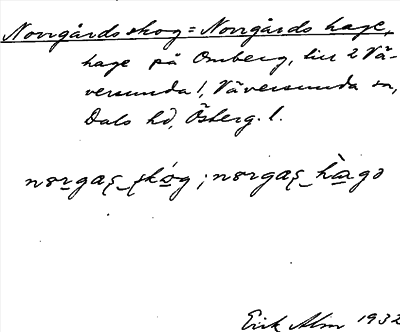 Norrgårdsskog = Norrgårds hage,
hage på Omberg, till 2 Vä-
versunda 1, Väversunda sn,
Dals hd, Österg. l.
nərgaș_șkóg ; nərgaș_hàgə
Erik Alm 1932